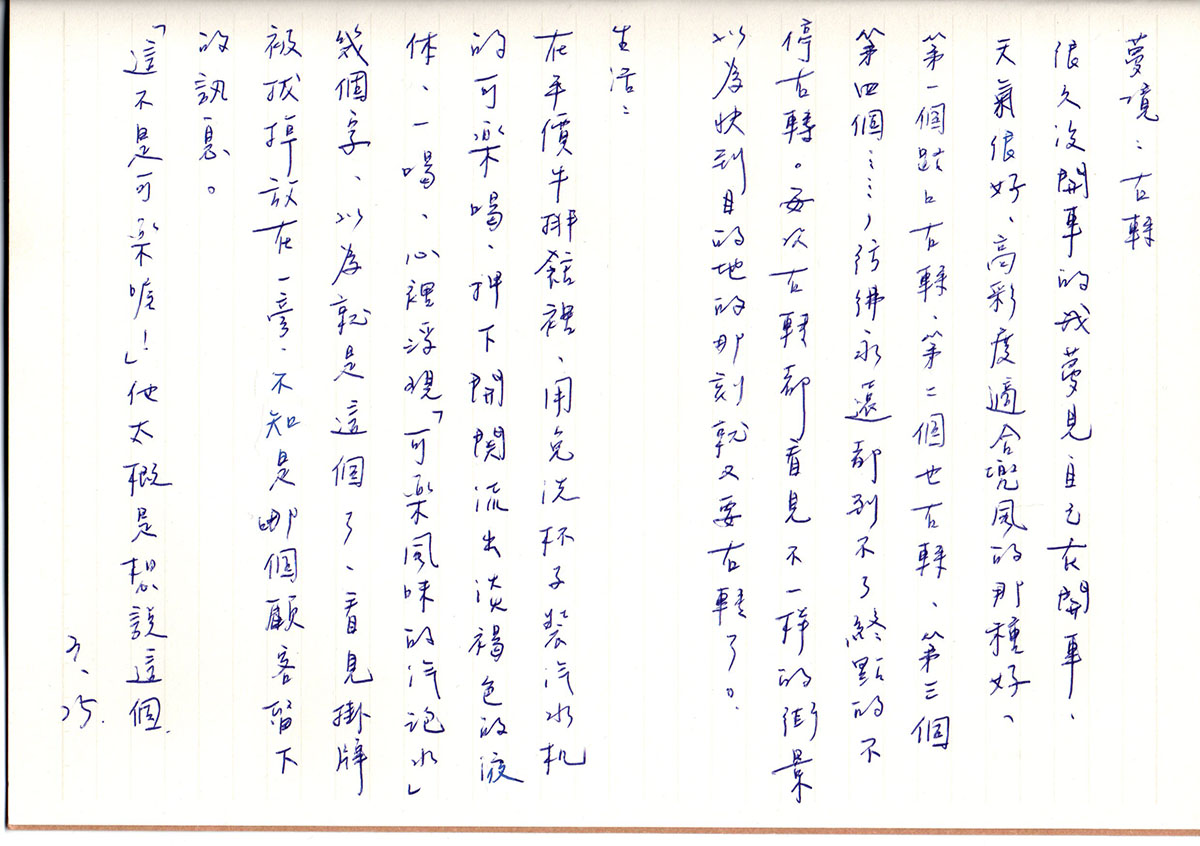 夢境：右轉
很久沒開車的我夢見自己在開車、
天氣很好、高彩度適合兜風的那種好、
第一個路口右轉、第二個也右轉、第三個
第四個……，彷彿永遠都到不了終點的不
停右轉。每次右轉都看見不一樣的街景
以為快到目的地的那刻就又要右轉了。
生活：
在平價牛排館裡、用免洗杯子裝汽水机
的可樂喝、押下開關流出淡褐色的液
体、一喝、心裡浮現「可樂風味的汽泡水」
幾個字、以為就是這個了、看見掛牌
被拔掉放在一旁、不知是哪個顧客留下
的訊息。
「這不是可樂唉！」他太概是想說這個.
3、25.